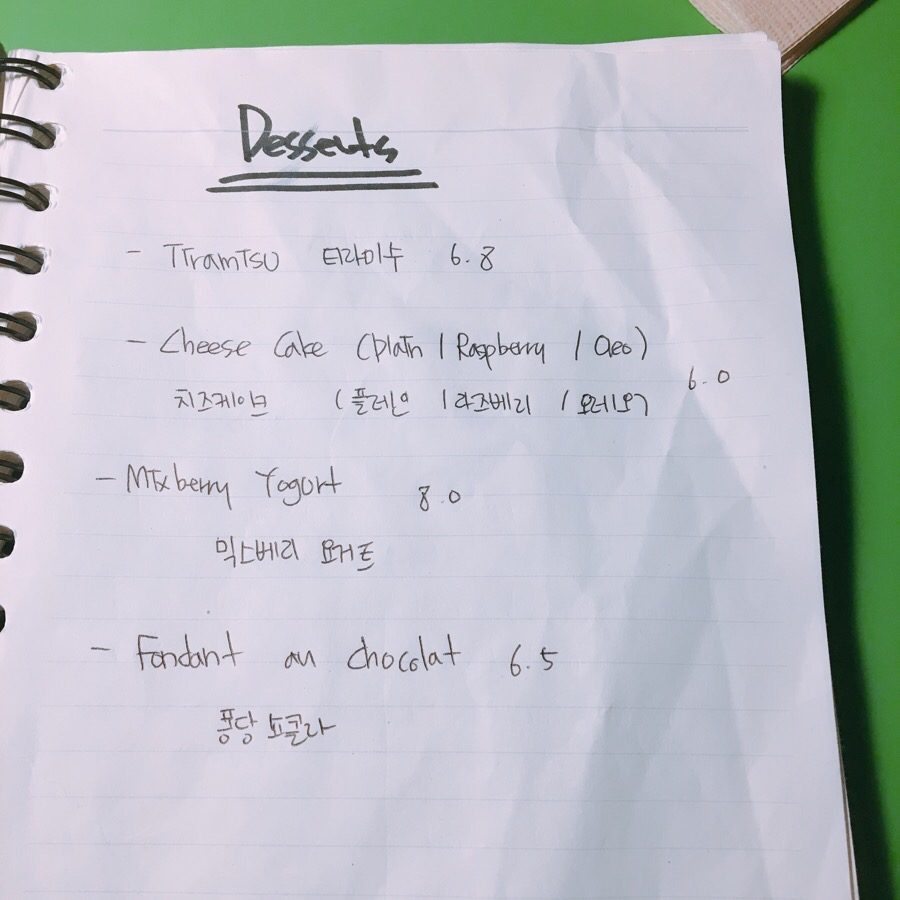 Desserts
- Tiramisu 티라미수 6.8
- Cheese Cake (plain / Raspberry / Oreo)
치즈케이크 (플레인 / 라즈베리 / 오레오) 6.0
- Mixberry Yogurt 8.0
믹스베리 요거트
- Fondant au chocolat 6.5
퐁당 쇼콜라